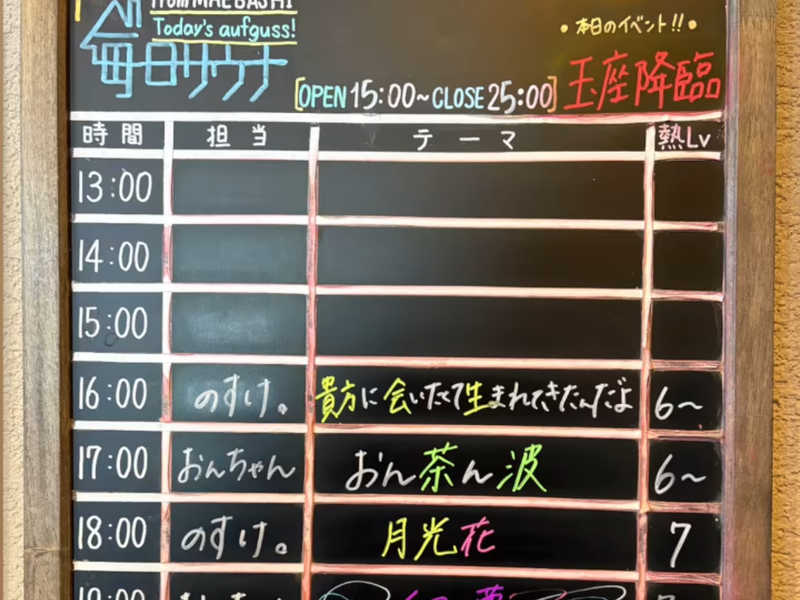 from MAEBASHI
Today's aufguss!
毎日サウナ
• 本日のイベント!! •
[OPEN 15:00~CLOSE 25:00]
玉座降臨
時間 担当 テーマ 熱Lv
13:00
14:00
15:00
16:00 のすけ。 貴方に会いたくて生まれてきたんだよ 6~
17:00 おんちゃん おん茶ん波 6~
18:00 のすけ。 月光花 7
19:00